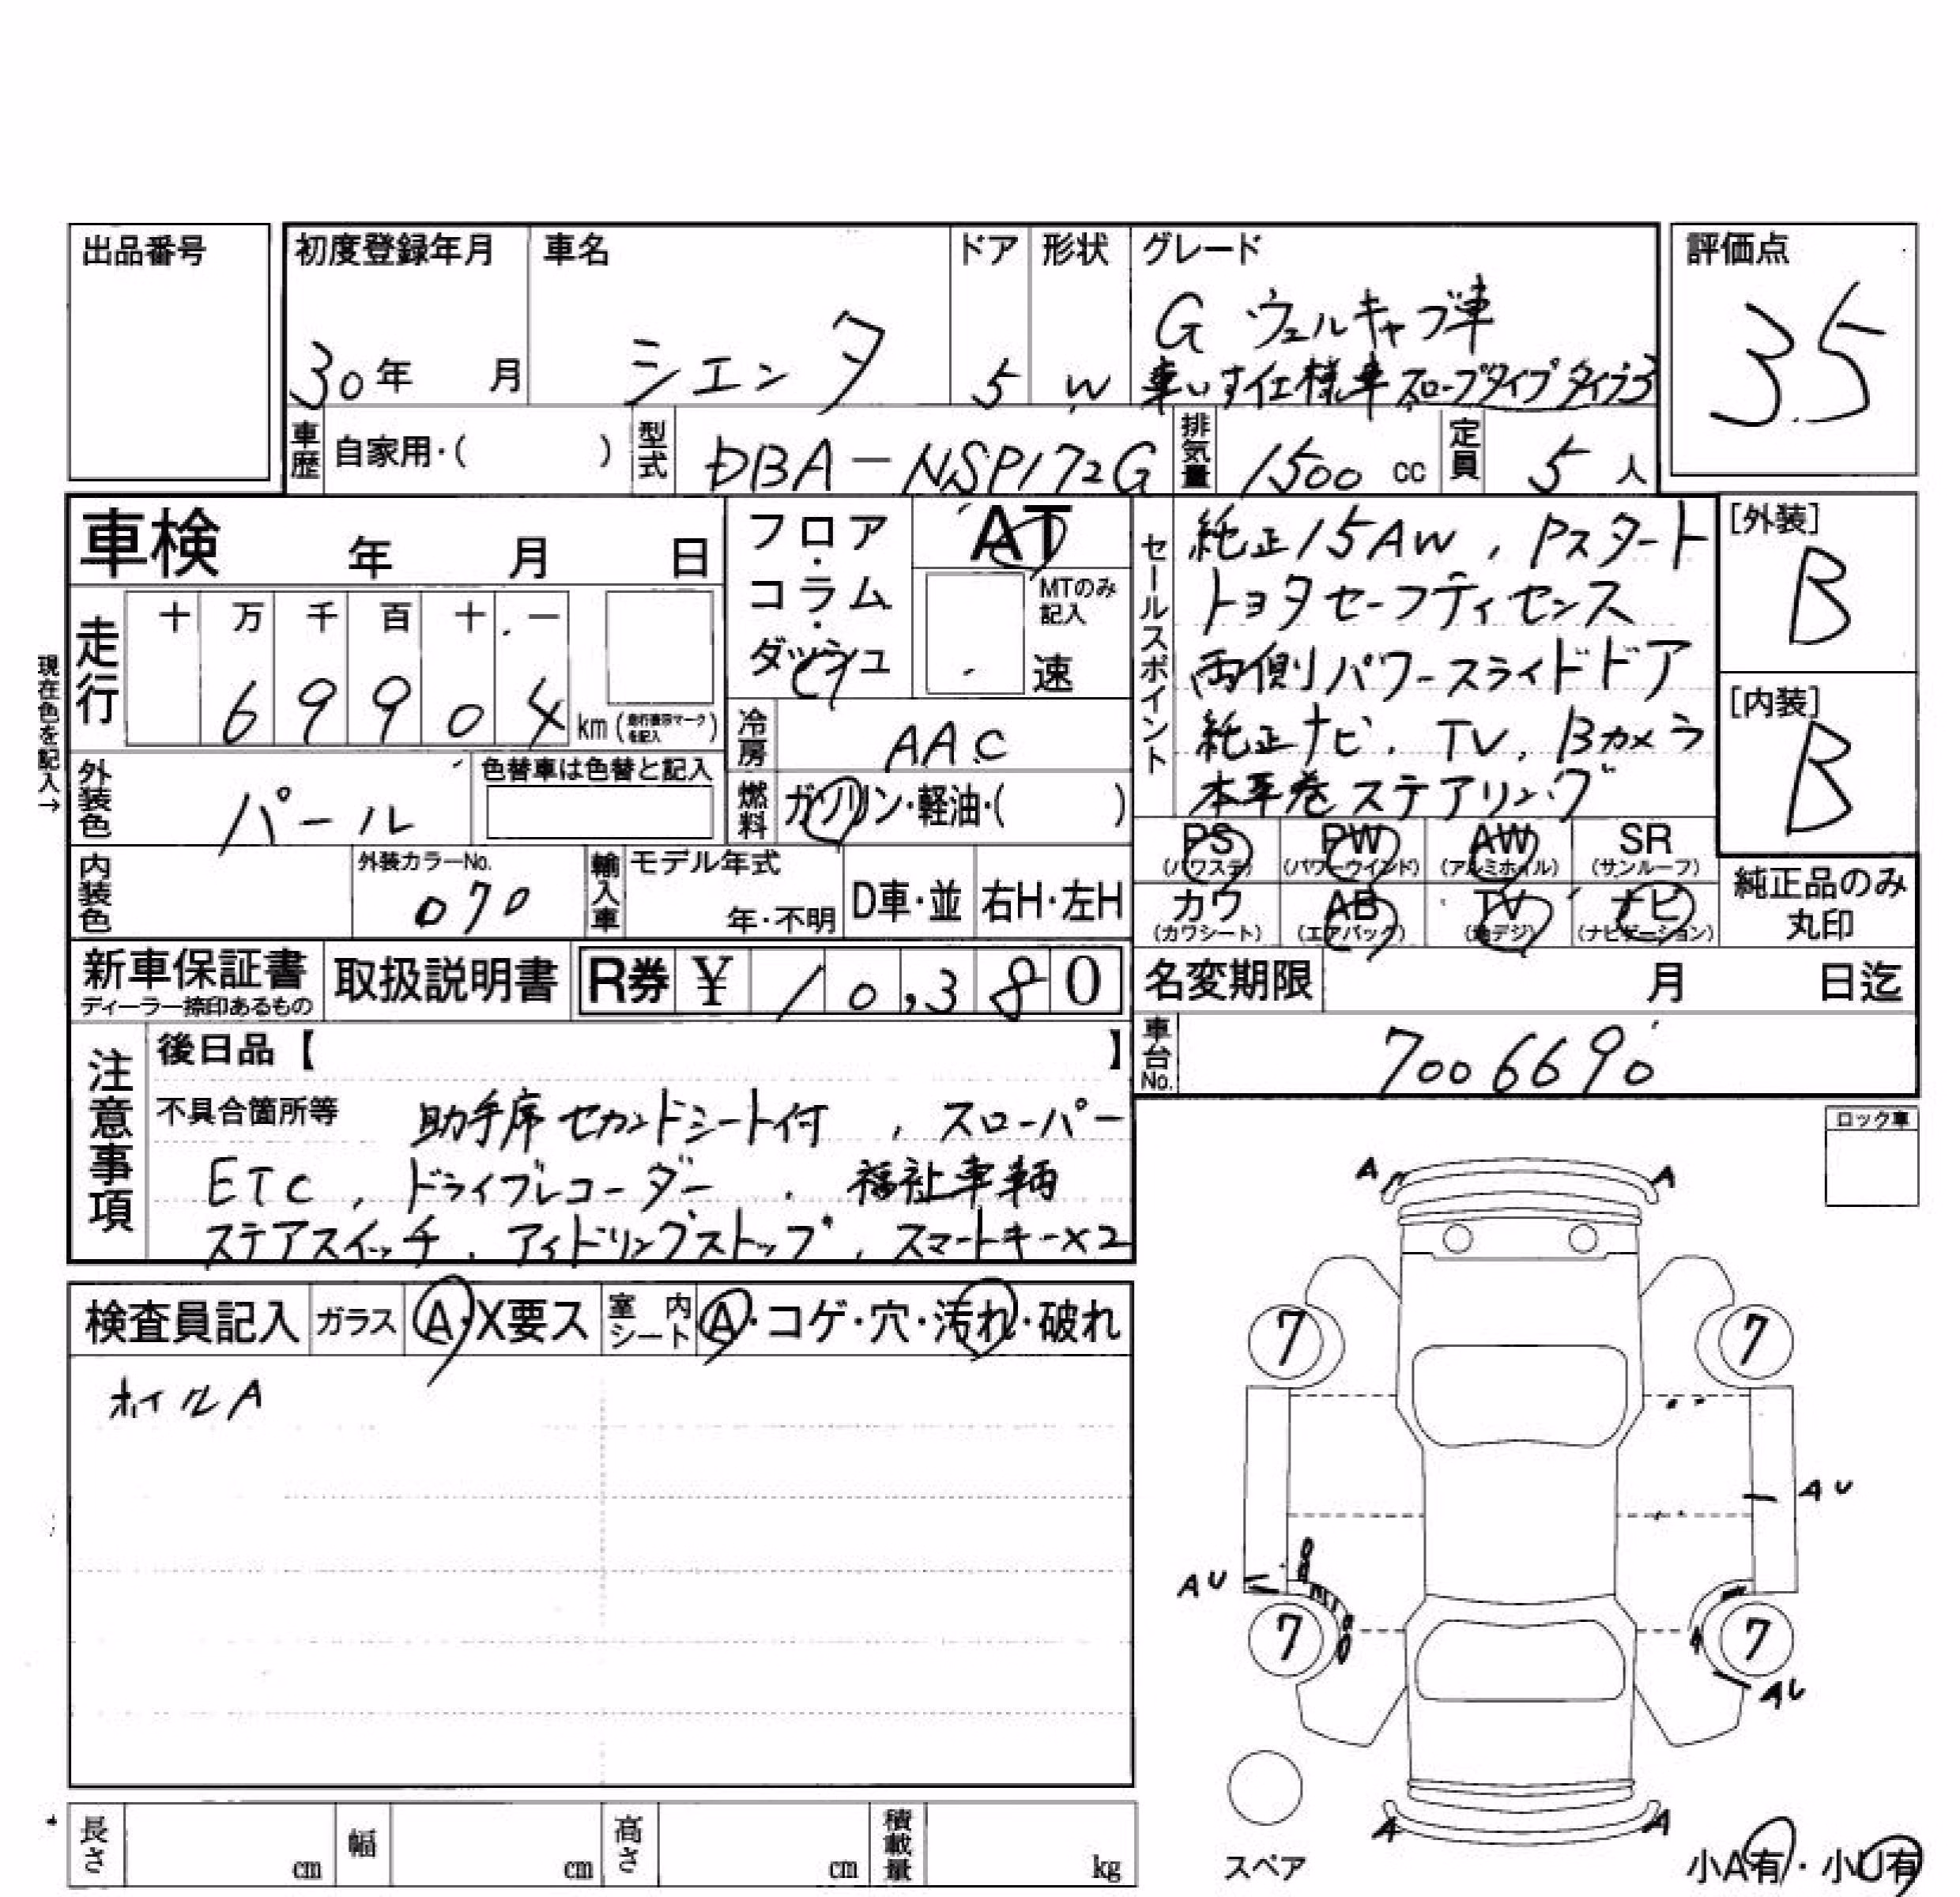 出品番号
初度登録年月 車名 ドア 形状 グレード 評価点
G ウェルキャブ車
30年 月 シエンタ 5 W 車いす仕様車スロープタイプ タイプ3 3.5
車歴 自家用・( ) 型式 DBA-NSP172G 排気量 1500 cc 定員 5 人
車検 年 月 日
フロア・コラム・ダッシュ AT
MTのみ記入
速
セールスポイント
純正15AW, Pスタート
トヨタセーフティセンス
両側パワースライドドア
純正ナビ, TV, Bカメラ
本革巻ステアリング
[外装] B
[内装] B
現在色を記入→
走行 十 万 千 百 十 一
6 9 9 0 4 km (走行表示マークを記入)
冷房 AAC
燃料 ガソリン・軽油・( )
外装色 パール 色替車は色替と記入
PS (パワステ) PW (パワーウインド) AW (アルミホイル) SR (サンルーフ)
カワ (カワシート) AB (エアバック) TV (地デジ) ナビ (ナビゲーション)
純正品のみ丸印
内装色 外装カラーNo. 070 輸入車 モデル年式 年・不明 D車・並 右H・左H
新車保証書 ディーラー捺印あるもの 取扱説明書 R券 ¥ 10,380
名変期限 月 日迄
車台No. 7006690
注意事項
後日品【 】
不具合箇所等 助手席セカンドシート付 , スローパー
ETC , ドライブレコーダー , 福祉車輌
ステアスイッチ , アイドリングストップ , スマートキー×2
検査員記入 ガラス A・X要ス 室内シート A・コゲ・穴・汚れ・破れ
ホイルA
ロック車
A A
7 7
AU
AU
7 7
AU
A A
スペア
小A有・小U有
長さ cm 幅 cm 高さ cm 積載量 kg